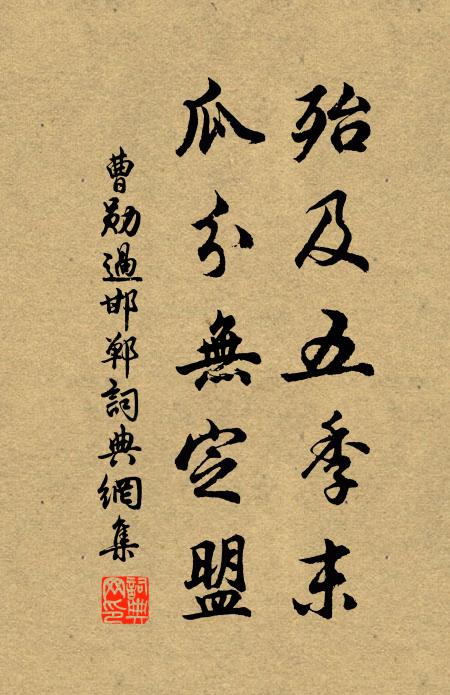 殆及五季末
瓜分無定盟
曹勛過邯鄲詞典網集
詞典网印